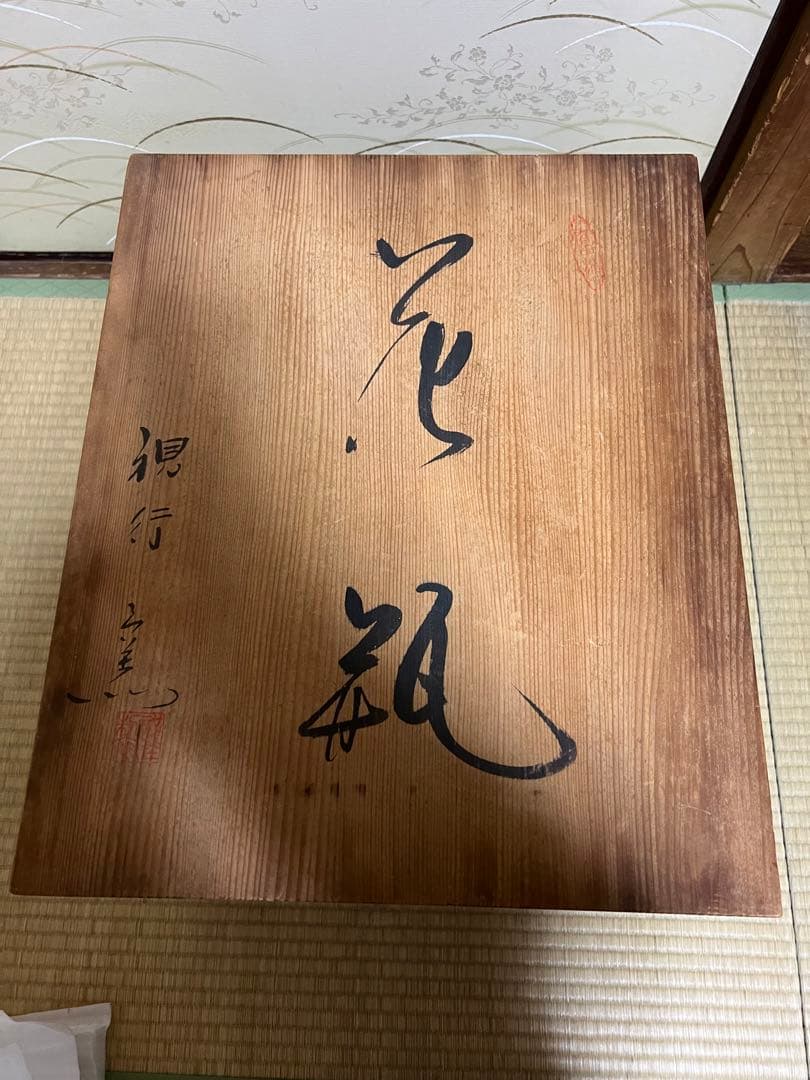 花瓶
視行窯